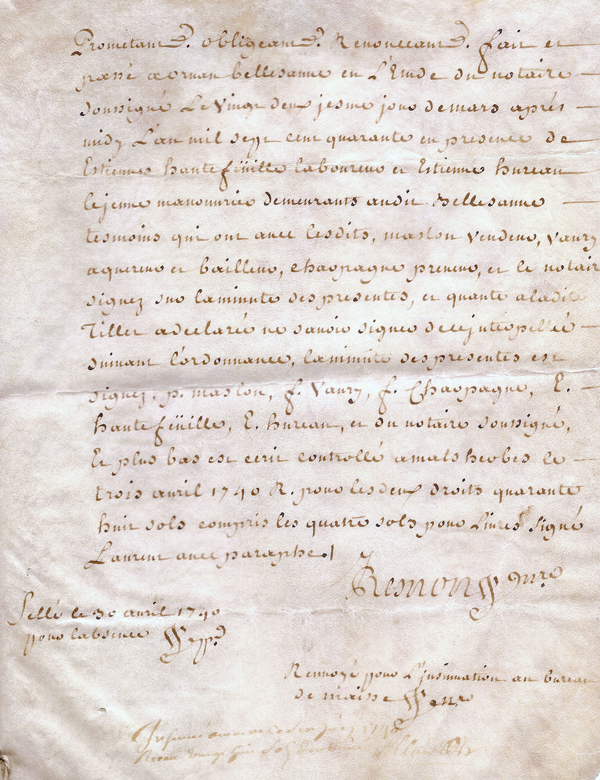 Prometant &c. obligeant &c. Renonceant &c. fait et
passé a ornan bellesanne en L'Etude du notaire
soussigné Le Vingt deux jesme jour de mars aprés
midy L'an mil sept cent quarante en presence de
Estiennes hautefëüille laboureur et Estienne hureau
lejeune manouvrier demeurants audit Bellesanne
tesmoins qui ont avec lesdits, maslon vendeur, Vaury
aquereur et bailleur, Chaopagne preneur, et le notair
signez sur laminutte des presentes, et quante aladite
Tiller adeclarée ne savoir signer de ce jnterpellée
suivant l'ordonnance, laminutte des presentes est
signez. p. maslon, f. Vaury, f. Chaopagne, E.
hautefëüille, E. hureau, et du notaire soussigné,
Et plus bas est ecrit controllé amalsherbes le
trois avril 1740 R. pour les deux droits quarante
huit sols compris les quatre sols pour Livres Signé
Laurent avec paraphe.
Remong nre
Sellé le 30 avril 1740
pour labsence
Renvoyé pour L'insinuation au bureau
de maisse